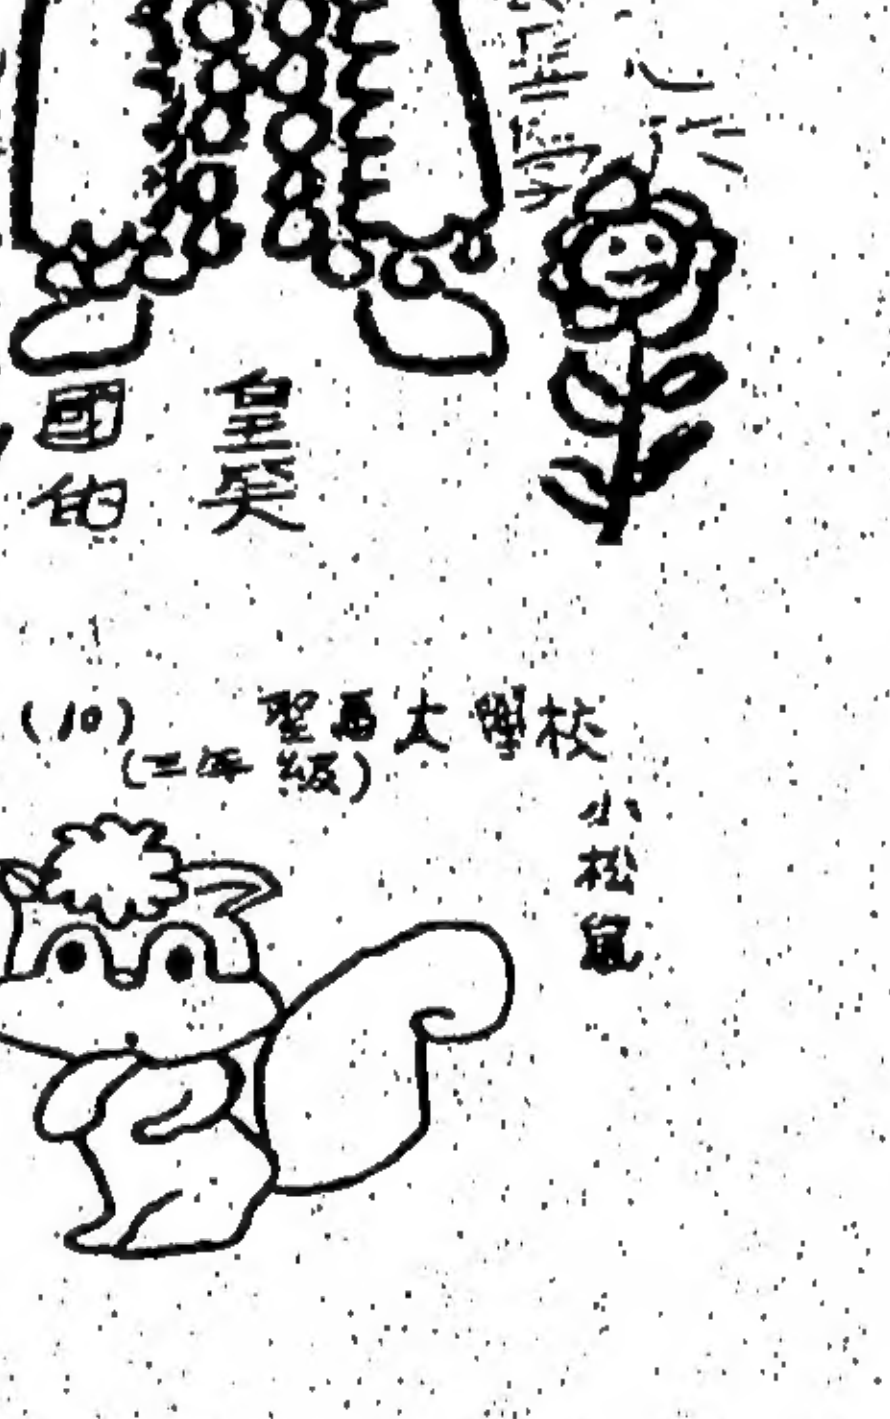 皇癸
國的
(10)
聖馬太學校
(三年級)
小松鼠